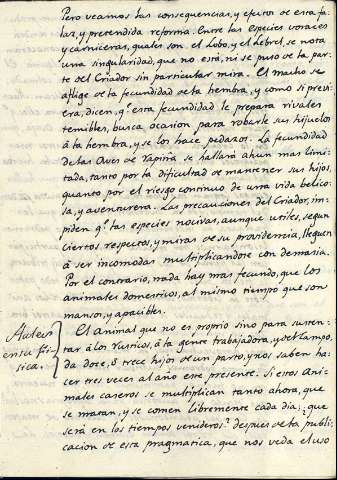 Pero veamos las consequencias, y efectos de esta fa-
lsa, y pretendida reforma. Entre las especies voraces
y carniceras, quales son el Lobo, y el Lebrel, se nota
una singularidad, que no está, ni se puso de la par-
te del Criador sin particular mira. El macho se
aflige de la fecundidad de la hembra, y como si previ-
era, dicen, q.e esta fecundidad le prepara rivales
temibles, busca ocasion para robarle sus hijuelos
á la hembra, y se los hace pedazos. La fecundidad
de las Aves de Rapiña se hallará ahun mas limi-
tada, tanto por la dificultad de mantener sus hijos,
quanto por el riesgo continuo de una vida belico-
sa, y aventurera. Las precauciones del Criador, im-
piden q.e las especies nocivas, aunque utiles, segun
ciertos respectos, y miras de su providencia, lleguen
á ser incomodas multiplicandose con demasia.
Por el contrario, nada hay mas fecundo, que los
animales domesticos, al mismo tiempo que son
mansos, y apacibles.
Auters
en su Fi-
sica.
El animal que no es proprio sino para susten-
tar á los Rusticos, á la gente trabajadora, y del Campo,
da doce, ó trece hijos de un parto, y nos saben ha-
cer tres veces al año este presente. Si estos Ani-
males caseros se multiplican tanto ahora, que
se matan, y se comen libremente cada dia; ¿que
será en los tiempos venideros? despues de la publi-
cacion de esta pragmatica, que nos veda el uso